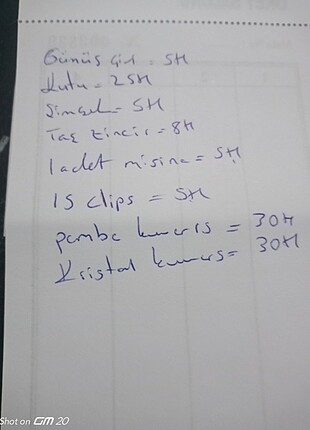 Gümüş çivi = 5H
Kutu = 25H
Şimşel = 5H
Taş zincir = 8H
1 adet misina = 5H
15 clips = 5H
pembe kuvars = 30H
Kristal kuvars = 30H
Shot on GM 20